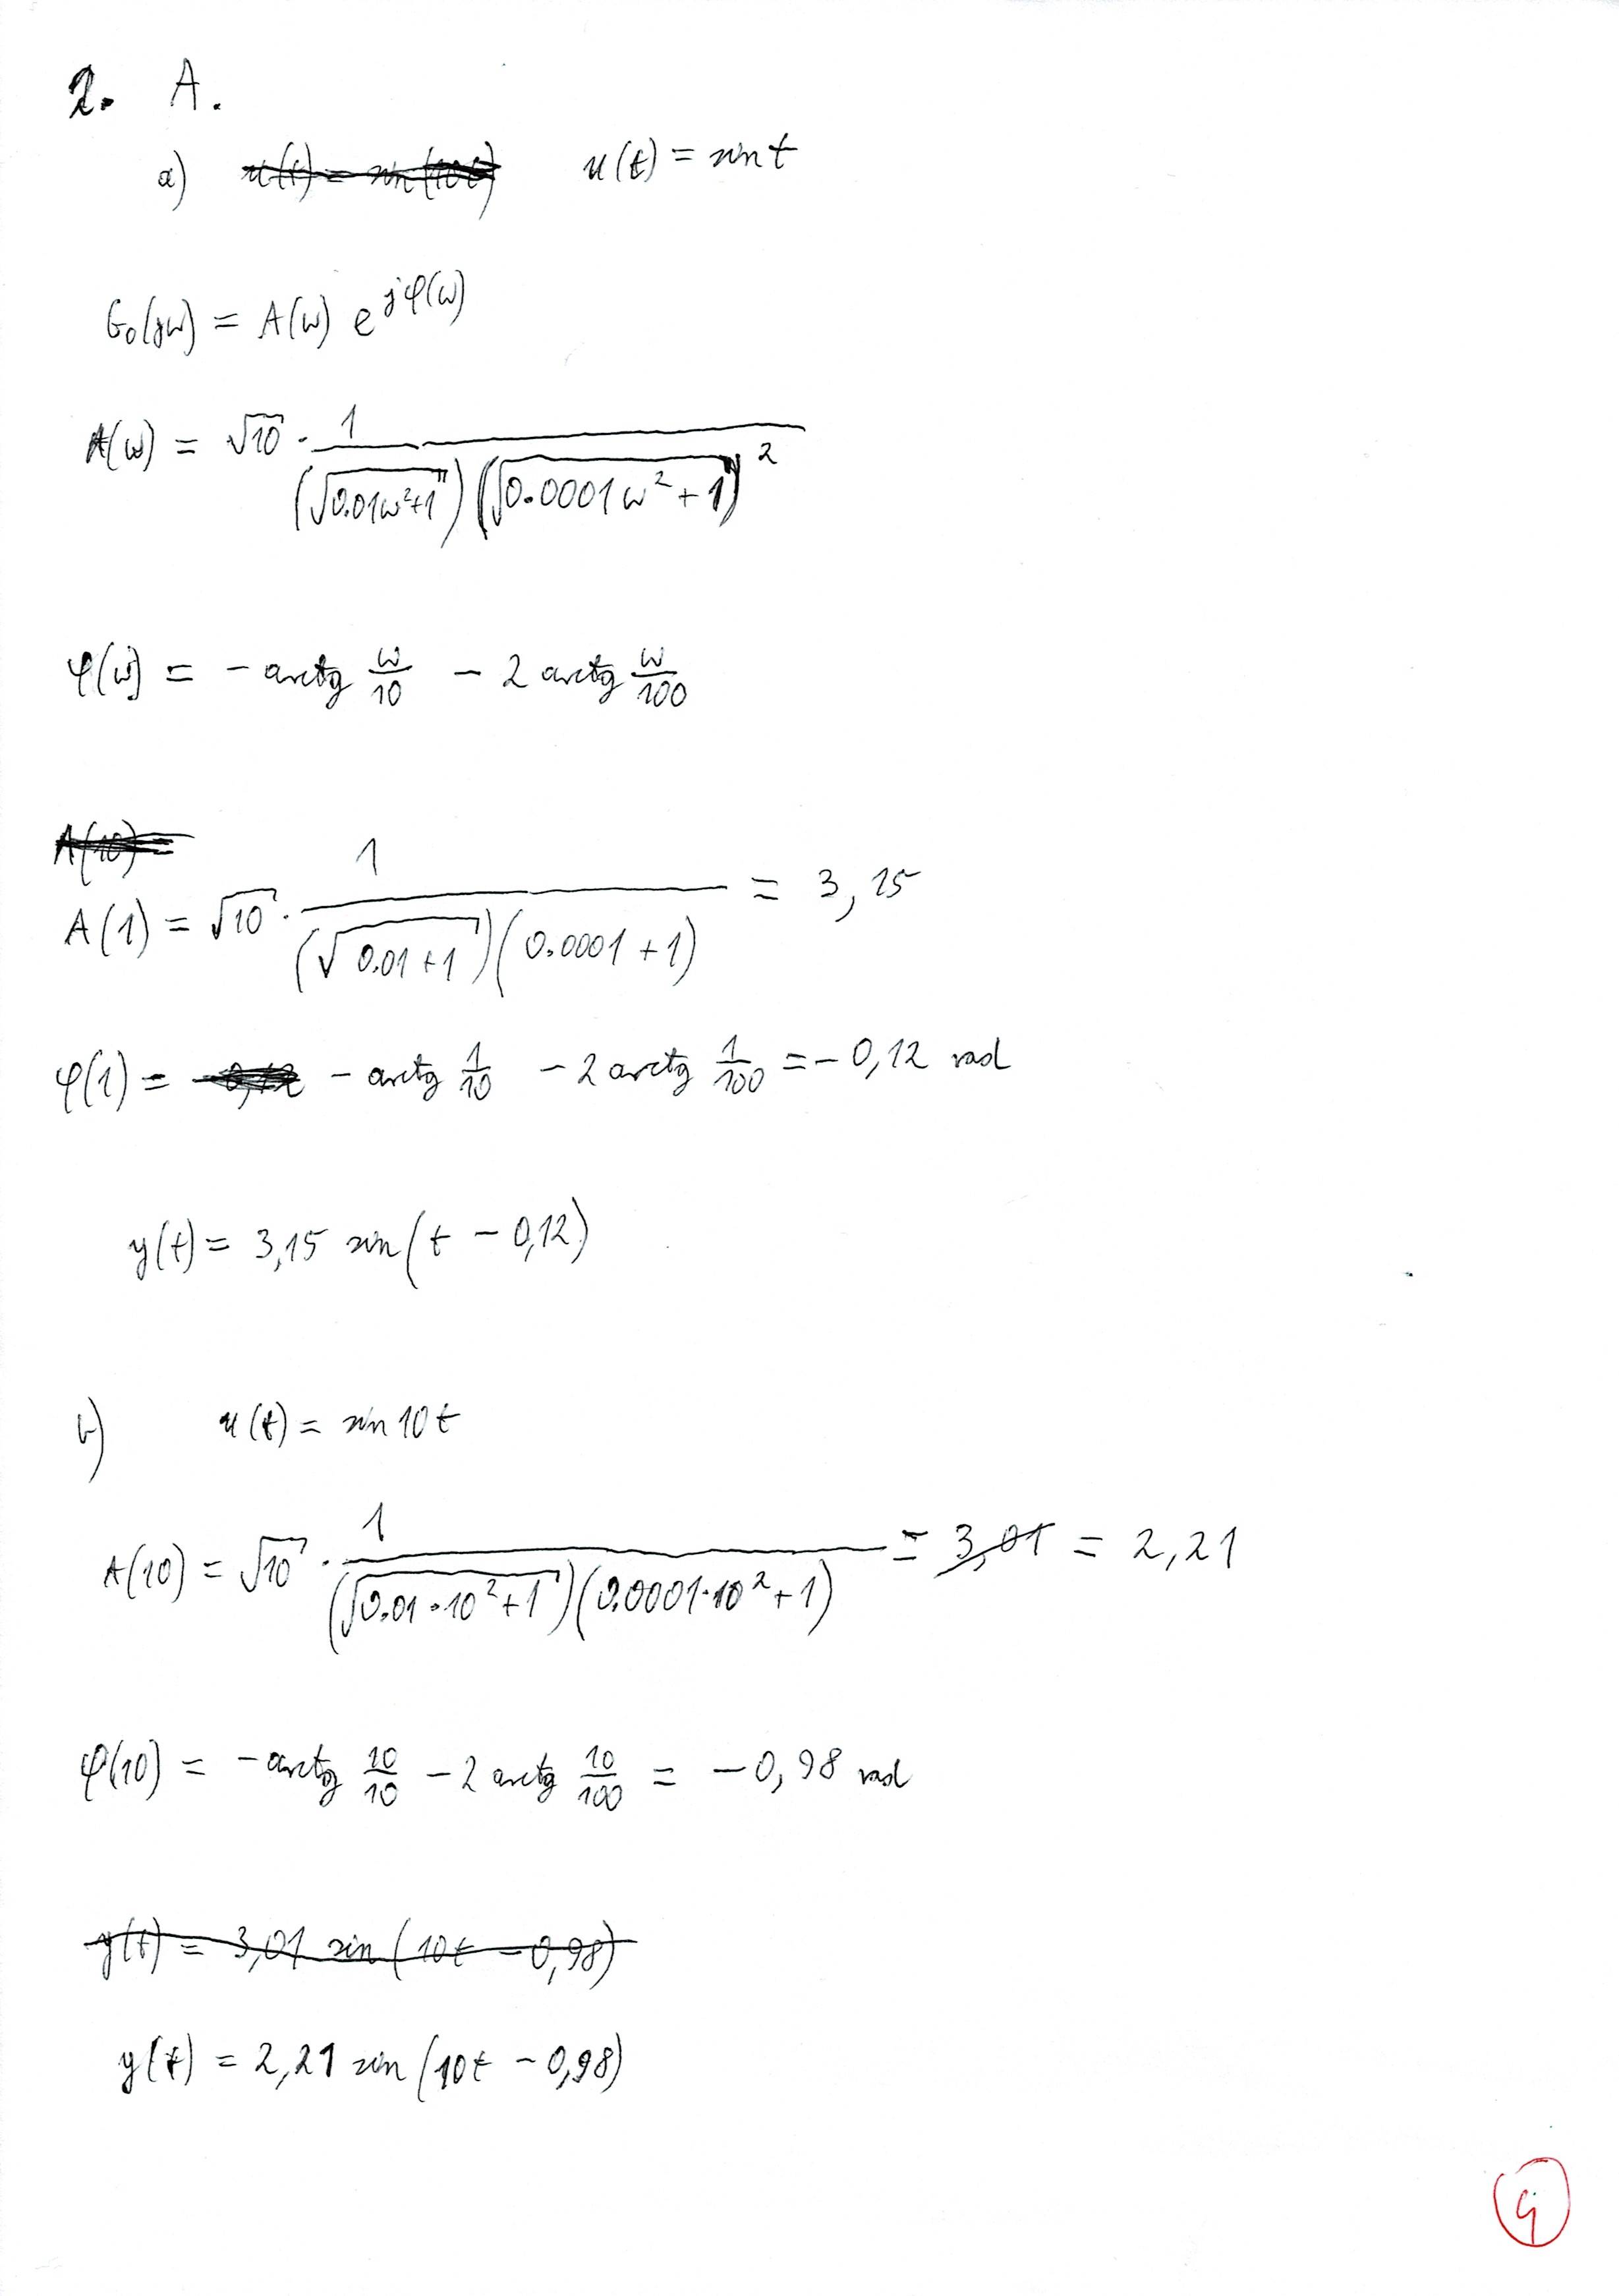 2. A.
a) u(t) = sin(10t) u(t) = sin t
G₀(jω) = A(ω) e^{jφ(ω)}
A(ω) = √10 · 1 / (√(0.01ω²+1)) (√(0.0001ω²+1))²
φ(ω) = - arctg ω/10 - 2 arctg ω/100
A(10) =
A(1) = √10 · 1 / (√(0.01+1)) (0.0001+1) = 3,15
φ(1) = -0,12 - arctg 1/10 - 2 arctg 1/100 = - 0,12 rad
y(t) = 3,15 sin(t - 0,12)
b) u(t) = sin 10t
A(10) = √10 · 1 / (√(0.01·10²+1)) (0.0001·10²+1) = 3,01 = 2,21
φ(10) = - arctg 10/10 - 2 arctg 10/100 = -0,98 rad
y(t) = 3,01 sin(10t - 0,98)
y(t) = 2,21 sin(10t - 0,98)